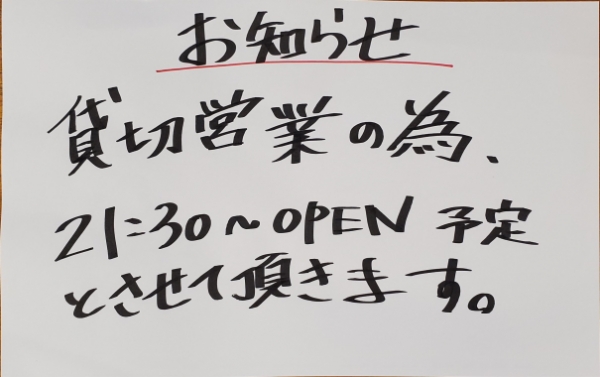 お知らせ
貸切営業の為、
21:30～OPEN 予定
とさせて頂きます。